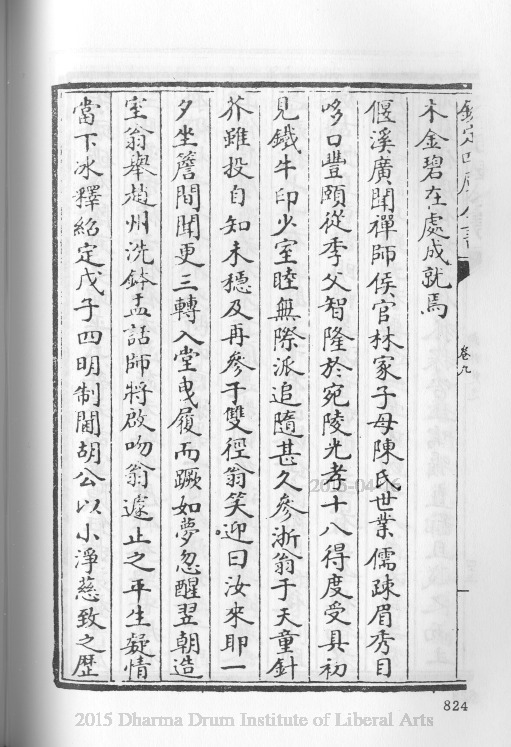 欽定四庫全書
卷九
木金碧在處成就焉
偃溪廣聞禪師侯官林家子母陳氏世業儒疎眉秀目
哆口豐頤從季父智隆於宛陵光孝十八得度受具初
見鐵牛印少室睦無際派追隨甚久參浙翁于天童針
芥雖投自知未穩及再參于雙徑翁笑迎曰汝來耶一
夕坐簷間聞更三轉入堂曳履而蹶如夢忽醒翌朝造
室翁舉趙州洗鉢盂話師將啟吻翁遽止之平生凝情
當下冰釋紹定戊子四明制閫胡公以小淨慈致之歷
824
2015 Dharma Drum Institute of Liberal Arts